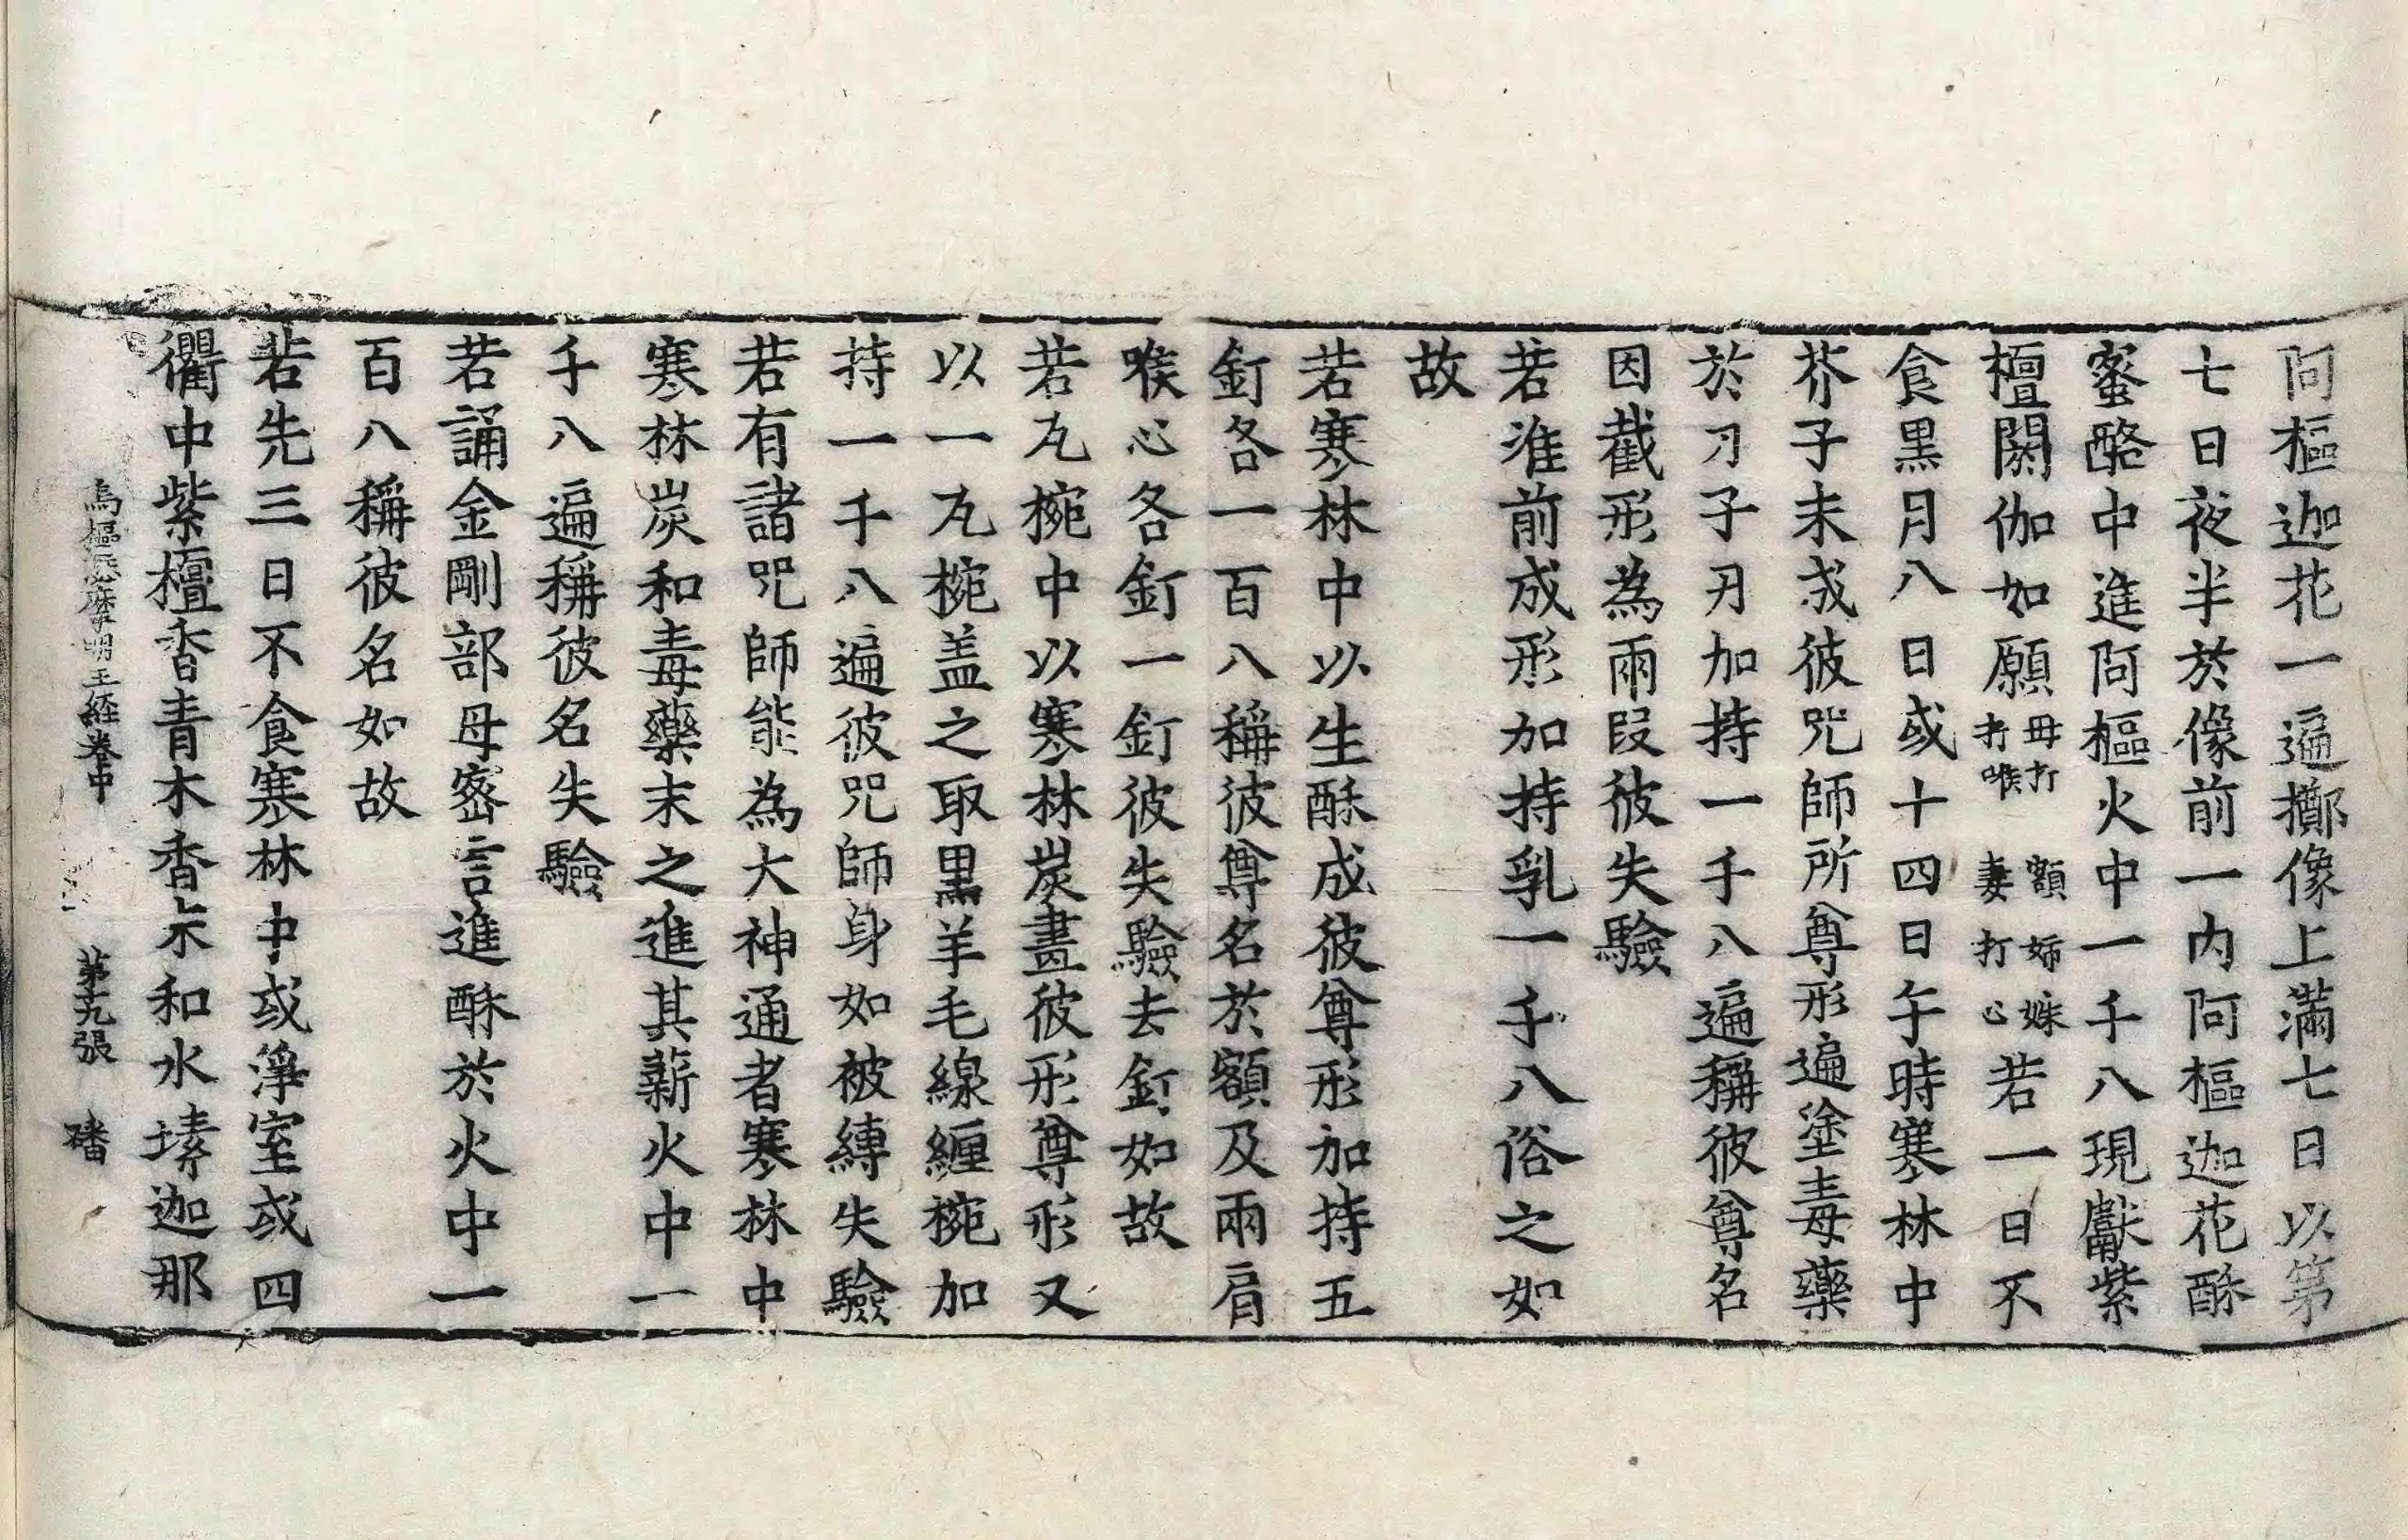 阿樞迦花一遍擲像上滿七日以第
七日夜半於像前一內阿樞迦花酥
蜜酪中進阿樞火中一千八現獻紫
檀閼伽如願母打額姊妹打喉妻打心若一日不
食黑月八日或十四日午時寒林中
芥子末成彼咒師所尊形遍塗毒藥
於刀子刃加持一千八遍稱彼尊名
因截形為兩段彼失驗
若准前成形加持乳一千八俗之如
故
若寒林中以生酥成彼尊形加持五
釘各一百八稱彼尊名於額及兩肩
喉心各釘一釘彼失驗去釘如故
若瓦椀中以寒林炭畫彼形尊形又
以一瓦椀盖之取黑羊毛線纏椀加
持一千八遍彼咒師身如被縛失驗
若有諸咒師能為大神通者寒林中
寒林炭和毒藥末之進其薪火中一
千八遍稱彼名失驗
若誦金剛部母密言進酥於火中一
百八稱彼名如故
若先三日不食寒林中或淨室或四
衢中紫檀香青木香尗和水壉迦那
烏樞澁摩明王経卷中 第十九張 磻